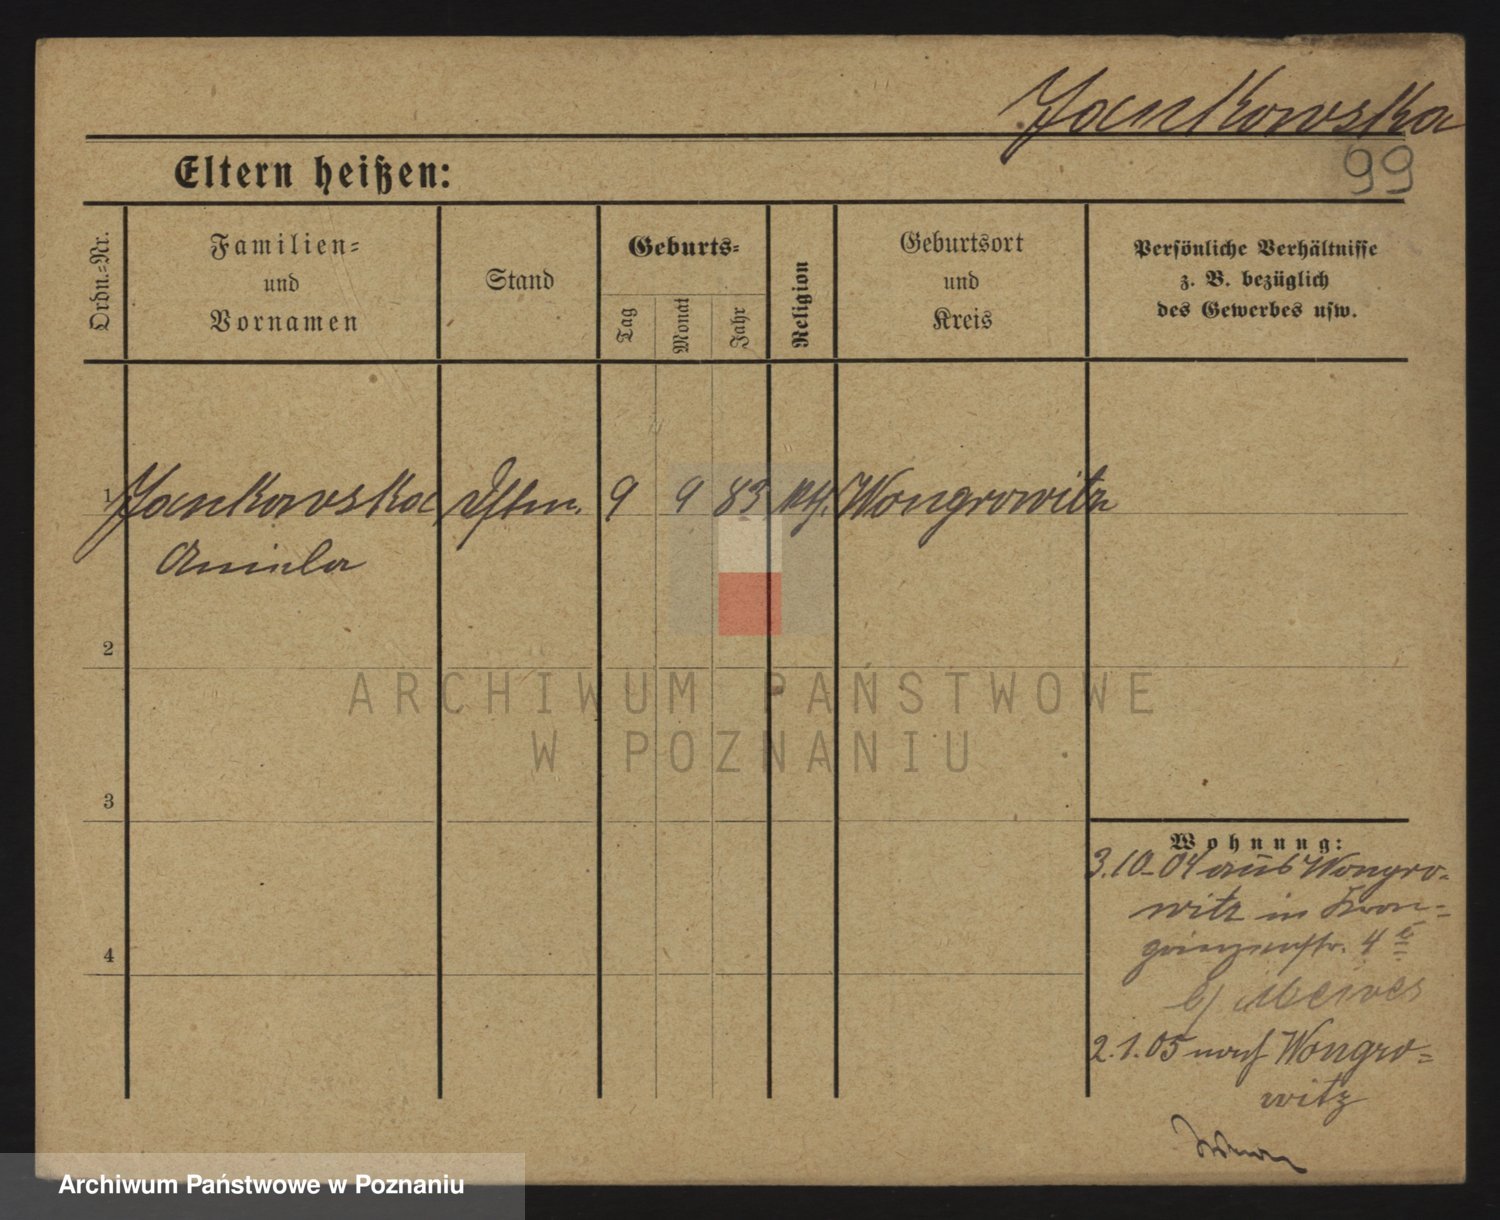 Jankowska
99
Eltern heißen:
Ordn.=Nr.
Familien=
und
Vornamen
Stand
Geburts=
Tag
Monat
Jahr
Religion
Geburtsort
und
Kreis
Persönliche Verhältnisse
z. B. bezüglich
des Gewerbes usw.
1 Jankowska 9 9 83 kth. Wongrowitz
Aniela
2
ARCHIWUM PAŃSTWOWE
W POZNANIU
3
Wohnung:
3.10.04 aus Wongro=
witz in Kron=
prinzenstr. 4
b/ Meives
4
2.1.05 nach Wongro=
witz
Archiwum Państwowe w Poznaniu